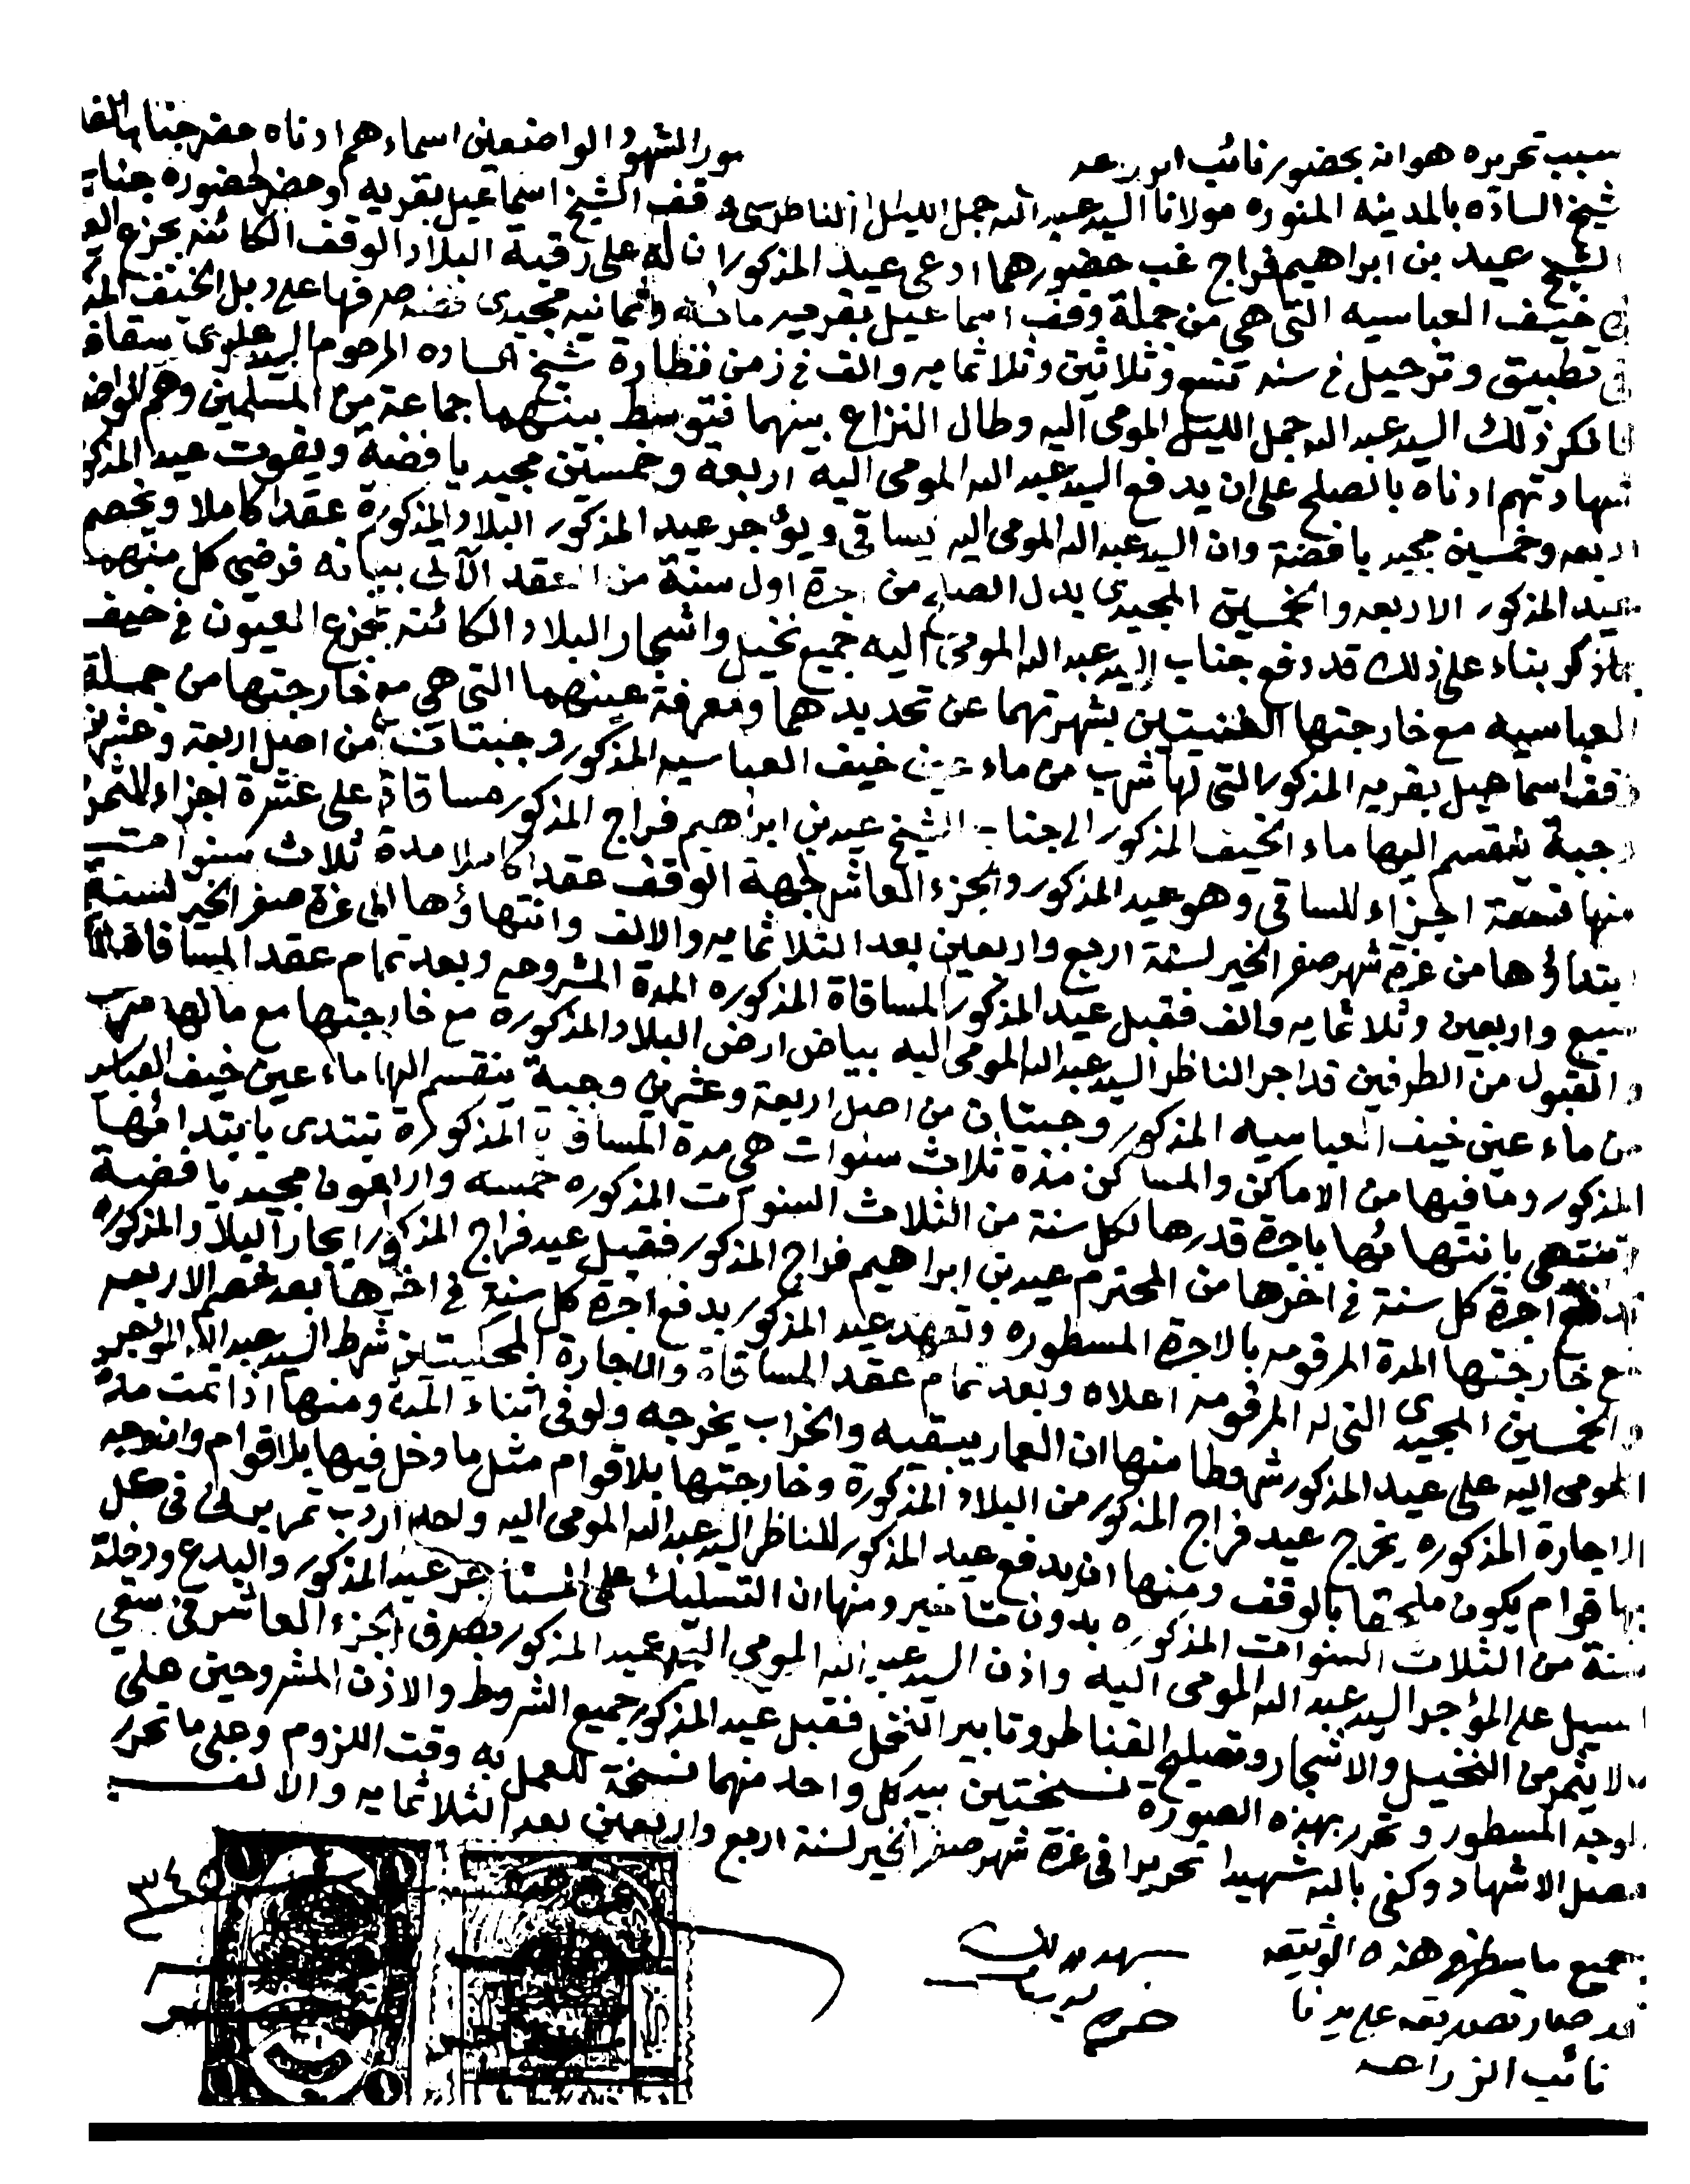 سبب تحريره هو انه بحضور نائب الزراعه الشهود الواضعين اسماءهم ادناه حضر جناب
شيخ الساده بالمدينه المنوره مولانا السيد عبد الله جمل الليل الناظر على وقف الشيخ اسماعيل بقريه وحضر لحضوره جناب
الشيخ عيد بن ابراهيم فراج غب حضورهما ادعى عيد المذكور ان له على رقبة البلاد الوقف الكائنه بجزع
خيف العباسيه التي هي من جملة وقف اسماعيل بقريه مائه وثمانيه مجيدى فضه صرفها على دبل الخيف
تطبيق وترحيل في سنه تسع وثلاثين وثلاثمايه والف في زمن نظارة شيخ الساده المرحوم السيد علوى سقاف
فانكر ذلك السيد عبد الله جمل الليل المومى اليه وطال النزاع بينهما فتوسط بينهما جماعة من المسلمين وهم
شهادتهم ادناه بالصلح على ان يدفع السيد عبد الله المومى اليه اربعة وخمسين مجيديا فضة ويفوت عيد المذكور
اربعه وخمسين مجيديا فضة وان السيد عبد الله المومى اليه يساقي ويؤجر عيد المذكور البلاد المذكورة عقدا كاملا ويخصم
عيد المذكور الاربعه والخمسين المجيدى بدل الصلح من اجرة اول سنة من العقد الآتى بيانه فرضي كل منهما
بما ذكر بناء على ذلك قد دفع جناب السيد عبد الله المومى اليه جميع نخيل واشجار البلاد الكائنه بجزع العيون في خيف
العباسيه مع خارجتها الغنيتين بشهرتهما عن تحديدهما ومعرفة عينهما التي هي مع خارجتها من جملة
وقف اسماعيل بقريه المذكور التي لها شرب من ماء عين خيف العباسيه المذكور وجبتان من اصل اربعة وعشرين
وجبة ينقسم اليها ماء الخيف المذكور الى جناب الشيخ عيد بن ابراهيم فراج المذكور مساقاة على عشرة اجزاء للثمر
منها تسعة اجزاء للساقي وهو عيد المذكور والجزء العاشر لجهة الوقف عقدا كاملا مدة ثلاث سنوات
ابتداؤها من غرة شهر صفر الخير لسنة اربع واربعين بعد الثلاثمايه والالف وانتهاؤها الى غرة صفر الخير لسنة
سبع واربعين وثلاثمايه والف فقبل عيد المذكور المساقاة المذكوره المدة المشروحه وبعد تمام عقد المساقاة
والقبول من الطرفين قد اجر الناظر السيد عبد الله المومى اليه بياض ارض البلاد المذكورة مع خارجتها مع مالها
من ماء عين خيف العباسيه المذكور وجبتان من اصل اربعة وعشرين وجبة ينقسم اليها ماء عين خيف العباسيه
المذكور وما فيها من الاماكن والمساكن مدة ثلاث سنوات هي مدة المساقاة المذكورة تبتدى بابتدائها
وتنتهى بانتهائها باجرة قدرها لكل سنة من الثلاث السنوات المذكوره خمسه واربعون مجيديا فضة
تدفع اجرة كل سنة في اخرها من المحترم عيد بن ابراهيم فراج المذكور فقبل عيد فراج المذكور ايجار البلاد المذكوره
مع خارجتها المدة المرقومه بالاجرة المسطوره وتعهد عيد المذكور بدفع اجرة كل سنة في اخرها بعد خصم الاربعه
والخمسين المجيدى التى له المرقومه اعلاه وبعد تمام عقد المساقاة والاجارة المحكيتين شرط السيد عبد الله المؤجر
المومى اليه على عيد المذكور شروطا منها ان العمار يبقيه والخراب يخرجه ولو في اثناء المدة ومنها اذا تمت مدة
الاجارة المذكوره يخرج عيد فراج المذكور من البلاد المذكورة وخارجتها بلا قوام مثل ما دخل فيها بلا قوام وان وجد
بها قوام يكون ملحقا بالوقف ومنها ان يدفع عيد المذكور للناظر السيد عبد الله المومى اليه واحد اردب تمر في كل
سنة من الثلاث السنوات المذكوره بدون متاخير ومنها ان التسليك على المستأجر عيد المذكور والبدع ودخلة
السيل على المؤجر السيد عبد الله المومى اليه واذن السيد عبد الله المومى اليه عيد المذكور بصرف الجزء العاشر في سقي
مالا يثمر من النخيل والاشجار وتصليح القناطر وتابير النخل فقبل عيد المذكور جميع الشروط والاذن المشروحين على
الوجه المسطور وتحرر بهذه الصورة نسختين بيد كل واحد منهما نسخة للعمل به وقت اللزوم وعلى ما تحرر
حصل الاشهاد وكفى بالله شهيدا تحريرا في غرة شهر صفر الخير لسنة اربع واربعين بعد الثلاثمايه والالف
جميع ما سطر في هذه الوثيقه
قد صار تصديقه على يدنا
نائب الزراعه